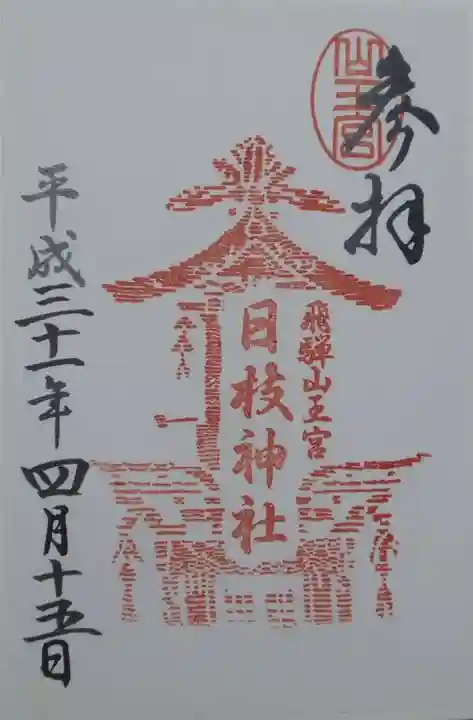 山王宮
参拝
飛騨山王宮
日枝神社
平成三十一年四月十五日